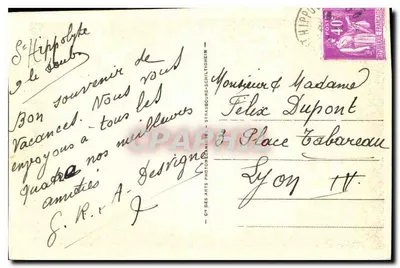 St Hippolyte
s/ le Doubs
Bon souvenir de
Vacances. Nous vous
envoyons à tous les
quatre nos meilleures
amitiés
G. R. & A. Desvigne
Monsieur & Madame
Felix Dupont
Place Tabareau
Lyon IV.
40
POSTES
HIPPO
CARPHILA
CIE DES ARTS PHOTOMECANIQUES STRASBOURG-SCHILTIGHEIM